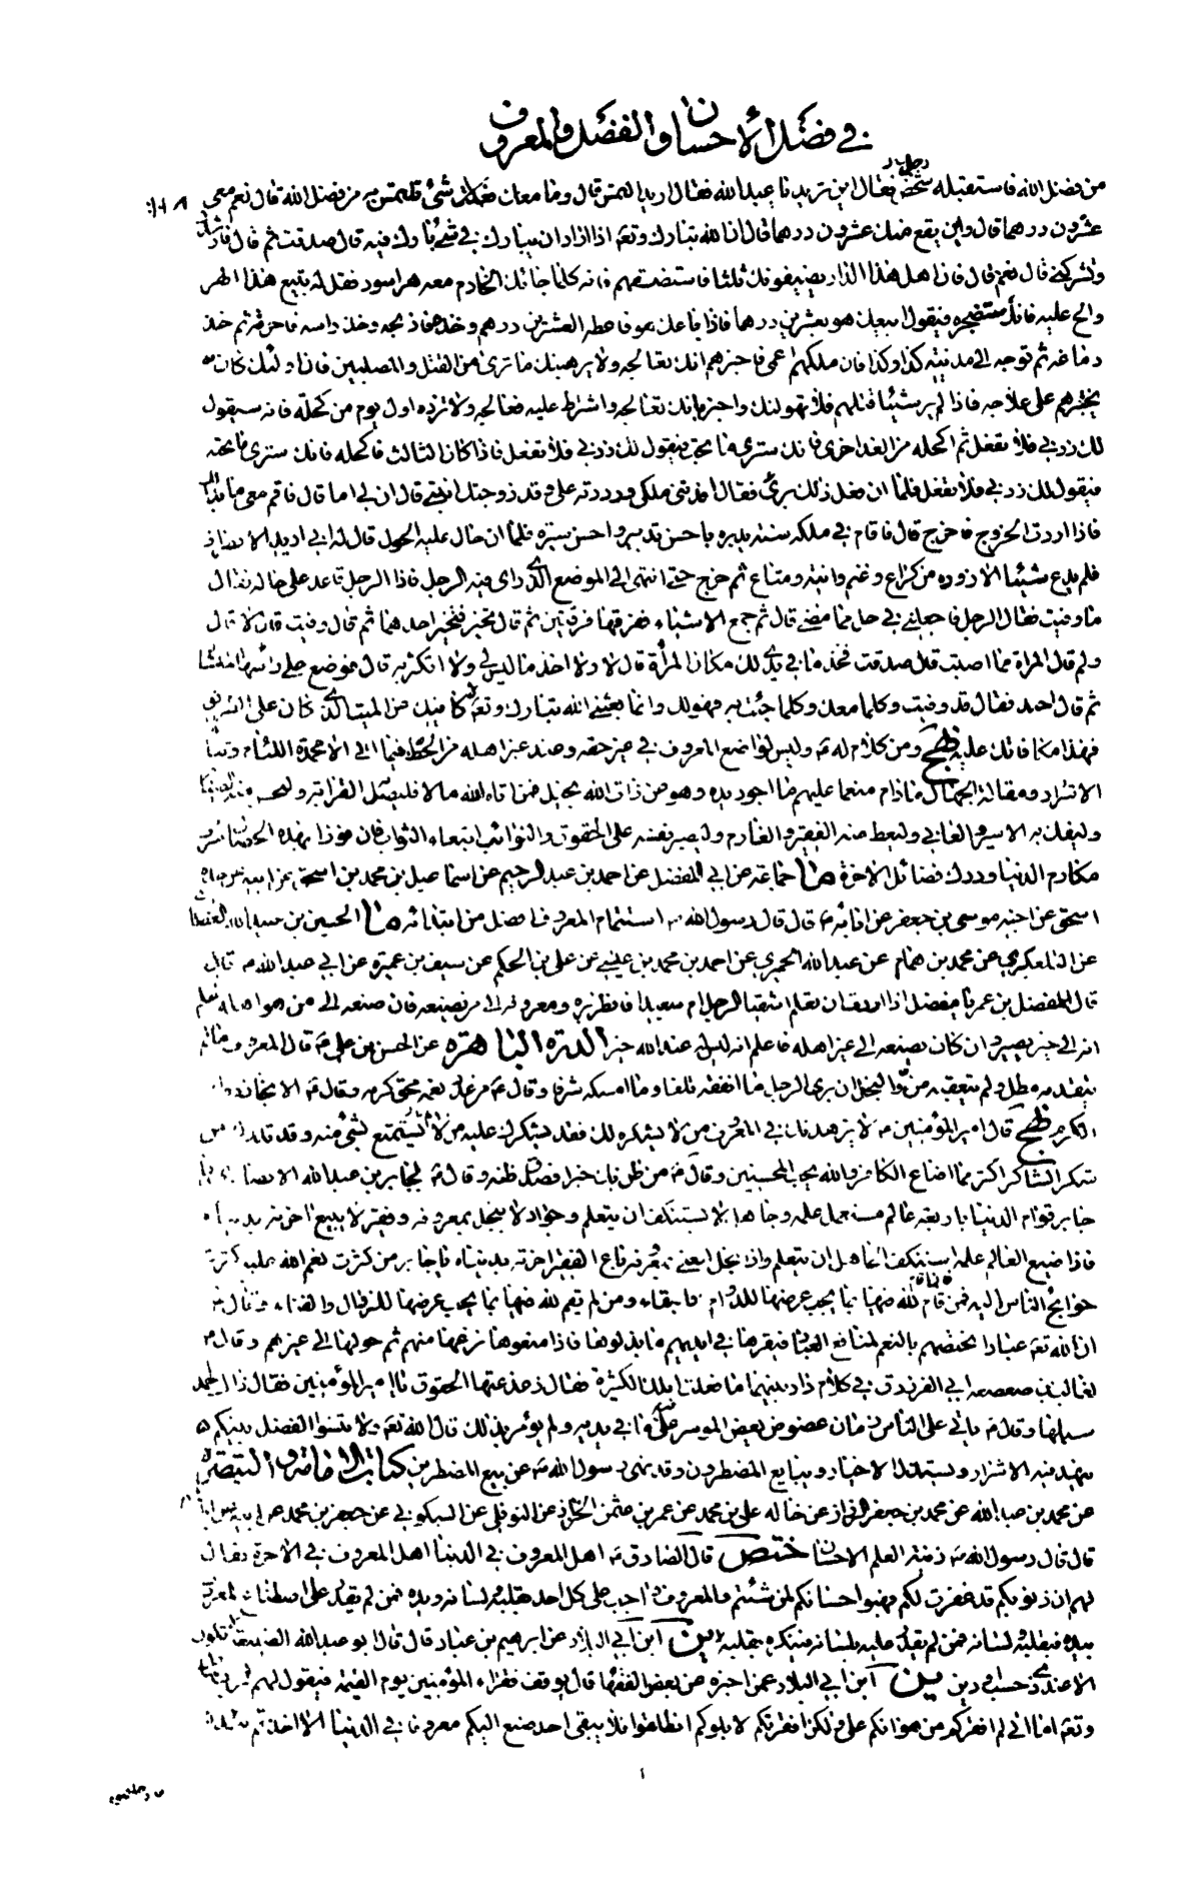 في فضل الاحسان والفضل والمعروف
من فضل الله فاستقبله شخص فقال اين تريد يا عبد الله فقال اريد التمس قال وما معك شئ من فضل الله قال نعم معي
عشرون درهما قال واين يقع منك عشرون درهما قال ان الله تبارك وتعه اذا اراد ان يبارك في شئ بارك فيه قال صدقت ثم قال
وتشركني قال نعم قال فان اهل هذا الدار يضيفونك ثلثا فاستضفهم فانه كلما جائك الخادم معه هر اسود فقل له تبيع هذا الهر
والح عليه فانك ستضجره فيقول ابيعك هو بعشرين درهما فاذا باعك هو فاعطه العشرين درهم وخذه فاذبحه وخذ راسه فاحرقه ثم خذ
دماغه ثم توجه الى مدينة كذا وكذا فان ملكهم اعمى فاخبرهم انك تعالجه ولا يرهبنك ما ترى من القتلى والمصلبين فان اولئك كان
يختبرهم على علاجه فاذا لم ير شيئا قتلهم فلا تهولنك واخبر بانك تعالجه واشترط عليه فعالجه ولا تزده اول يوم من كحلة فانه سيقول
لك زدني فلا تفعل ثم اكحله من الغد اخرى فانك سترى ما تحب فيقول لك زدني فلا تفعل فاذا كان الثالث فاكحله فانك سترى ما تحب
فيقول لك زدني فلا تفعل فلما ان فعل ذلك برئ فقال افدتني ملكي ورددته علي وقد زوجتك ابنتي قال ان لي اما قال فاقم معي ما بدا لك
فاذا اردت الخروج فاخرج قال فاقام في ملكه سنة يدبره باحسن تدبير واحسن سيرة فلما ان حال عليه الحول قال له اني اريد الانصراف
فلم يدع شيئا الا زوده من كراع وغنم وانية ومتاع ثم خرج حتى انتهى الى الموضع الذي راى فيه الرجل فاذا الرجل قاعد على حاله فقال
ما وفيت فقال الرجل فاجعلني في حل مما مضى قال ثم جمع الاشياء ففرقها فرقتين ثم قال تخير فتخير احدهما ثم قال وفيت قال لا قال
ولم قال المراة مما اصبت قال صدقت فخذ ما في يدي لك مكان المرأة قال لا ولا اخذ ما ليس لي ولا اتكثر به قال فوضع على راسها المنشار
ثم قال احد فقال قد وفيت وكلما معك وكلما جئت به فهو لك وانما بعثني الله تبارك وتعه لاكافيك عن الميت الذي كان على الطريق
فهذا مكافاتك عليه نهج ومن كلام له ع وليس لواضع المعروف في غير حقه وعند غير اهله من الحظ فيما اتى الا محمدة اللئام وثناء
الاشرار ومقالة الجهال ما دام منعما عليهم ما اجود يده وهو عن ذات الله بخيل فمن اتاه الله مالا فليصل به القرابة وليحسن منه الضيافة
وليفك به الاسير والعاني وليعط منه الفقير والغارم وليصبر نفسه على الحقوق والنوائب ابتغاء الثواب فان فوزا بهذه الخصال شرف
مكارم الدنيا ودرك فضائل الاخرة ما جماعة عن ابي المفضل عن احمد بن عبد الرحيم عن اسماعيل بن محمد بن اسحق عن ابيه عن جده
اسحق عن اخيه موسى بن جعفر عن ابائه ع قال قال رسول الله ص استتمام المعروف افضل من ابتدائه ما الحسين بن
عن التلعكبري عن محمد بن همام عن عبد الله الحميري عن احمد بن محمد بن عيسى عن علي بن الحكم عن سيف بن عميرة عن ابي عبد الله ع قال
قال للمفضل بن عمر يا مفضل اذا اردت ان تعلم اشقيا الرجل ام سعيدا فانظر بره ومعروفه الى من يصنعه فان صنعه الى من هو اهله فاعلم
انه الى خير يصير وان كان يصنعه الى غير اهله فاعلم انه ليس له عند الله خير الدرة الباهرة عن الحسن بن علي ع قال المعروف ما لم
يتقدمه مطل ولم يتعقبه من والبخل ان يرى الرجل ما انفقه تلفا وما امسكه شرفا وقال ع من عدد نعمه محق كرمه وقال ع الانجاز دواء
الكرم نهج قال امير المؤمنين ع لا يزهدنك في المعروف من لا يشكره لك فقد يشكرك عليه من لا يستمتع بشئ منه وقد تدرك من
شكر الشاكر اكثر مما اضاع الكافر والله يحب المحسنين وقال ع من ظن بك خيرا فصدق ظنه وقال ع لجابر بن عبد الله الانصاري يا
جابر قوام الدنيا باربعة عالم مستعمل علمه وجاهل لا يستنكف ان يتعلم وجواد لا يبخل بمعروفه وفقير لا يبيع اخرته بدنياه
فاذا ضيع العالم علمه استنكف الجاهل ان يتعلم واذا بخل الغني بمعروفه باع الفقير اخرته بدنياه يا جابر من كثرت نعم الله عليه كثرت
حوائج الناس اليه فمن قام لله فيها بما يجب عرضها للدوام والبقاء ومن لم يقم لله فيها بما يجب عرضها للزوال والفناء وقال ع
ان لله تعه عبادا يختصهم بالنعم لمنافع العباد فيقرها في ايديهم ما بذلوها فاذا منعوها نزعها منهم ثم حولها الى غيرهم وقال ع
لغالب بن صعصعة ابي الفرزدق في كلام دار بينهما ما فعلت ابلك الكثيرة فقال ذعذعتها الحقوق يا امير المؤمنين فقال ذلك احمد
سبلها وقال ع ياتي على الناس زمان عضوض يعض الموسر على ما في يديه ولم يؤمر بذلك قال الله تعه ولا تنسوا الفضل بينكم
ينهد فيه الاشرار ويستذل الاخيار ويبايع المضطرون وقد نهى رسول الله ص عن بيع المضطرين كتاب الامامة والتبصرة
عن محمد بن عبد الله عن محمد بن جعفر الرزاز عن خاله علي بن محمد عن عمر بن عثمن الخزاز عن النوفلي عن السكوني عن جعفر بن محمد عن ابيه عن ابائه
قال قال رسول الله ص زينة العلم الاحسان ختص قال الصادق ع اهل المعروف في الدنيا اهل المعروف في الاخرة يقال
لهم ان ذنوبكم قد غفرت لكم فهبوا حسناتكم لمن شئتم والمعروف واجب على كل احد بقلبه ولسانه ويده فمن لم يقدر على اصطناع المعروف
بيده فبقلبه ولسانه فمن لم يقدر عليه بلسانه فينوه بقلبه ين ابن ابي البلاد عن ابرهيم بن عباد قال قال ابو عبد الله الصنيعة لا تكون
الا عند ذي حسب او دين ين ابن ابي البلاد عمن اخبره عن بعض الفقهاء قال يوقف فقراء المؤمنين يوم القيمة فيقول لهم الرب تبارك
وتعه اما اني لم افقركم من هوانكم علي ولكن افقرتكم لابلوكم انطلقوا فلا يبقى احد صنع اليكم معروفا في الدنيا الا اخذتم بيده